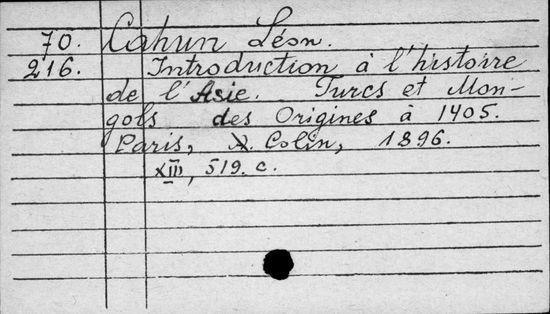 70. Cahun Léon.
216. Introduction à l'histoire
de l'Asie. Turcs et Mon-
gols des Origines à 1405.
Paris, A. Colin, 1896.
XIII, 519. c.